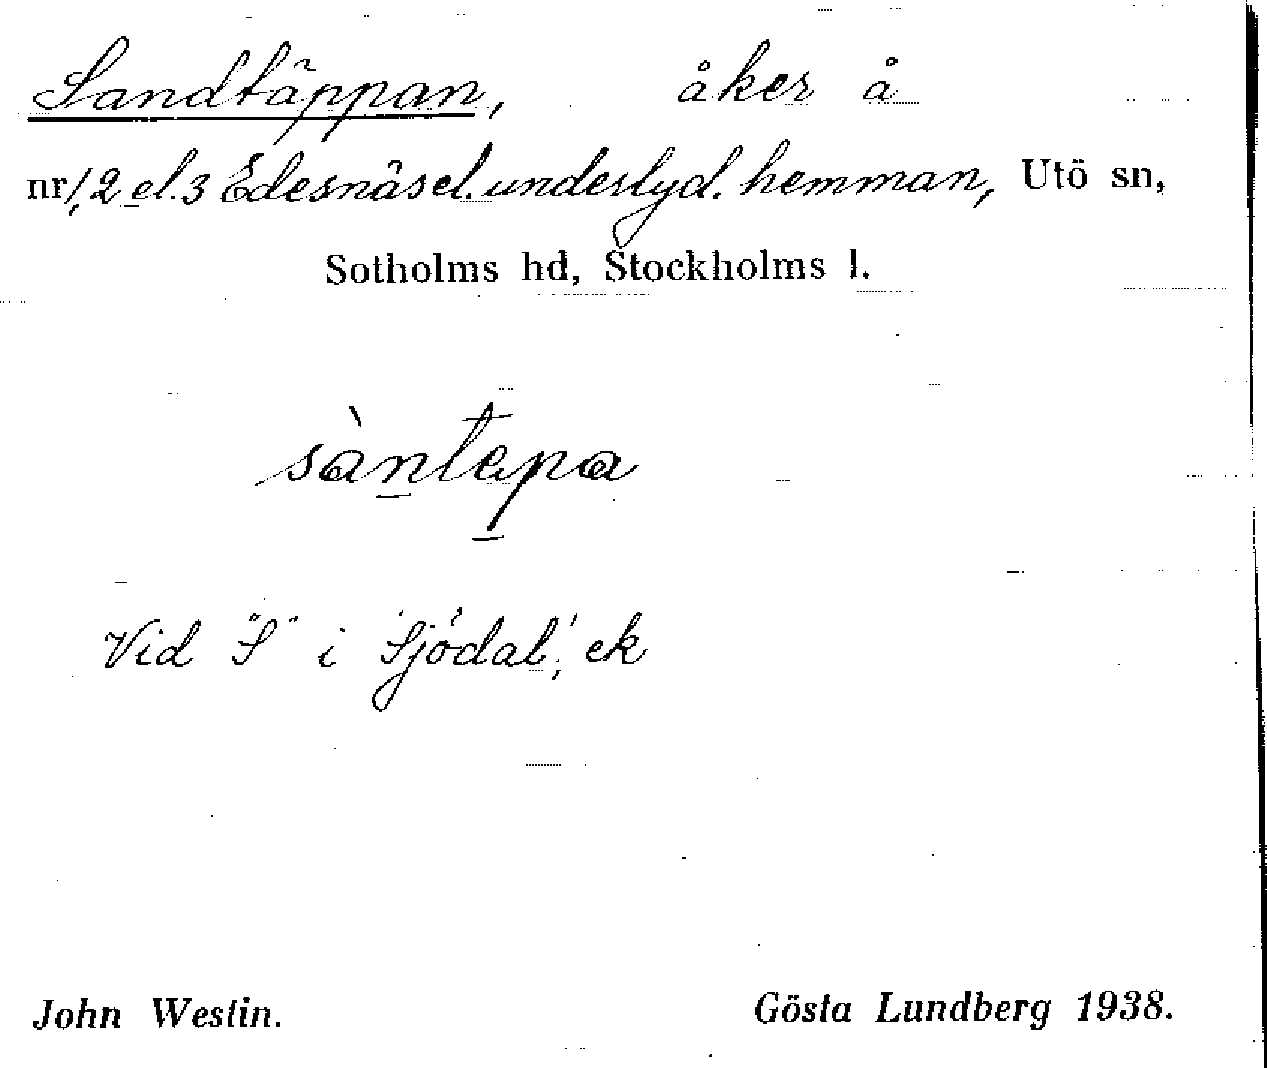 Sandtäppan, åker å
nr 1, 2 el. 3 Edesnäs el. underlyd. hemman, Utö sn,
Sotholms hd, Stockholms l.
sàntepa
Vid "S" i Sjödal, ek
John Westin. Gösta Lundberg 1938.